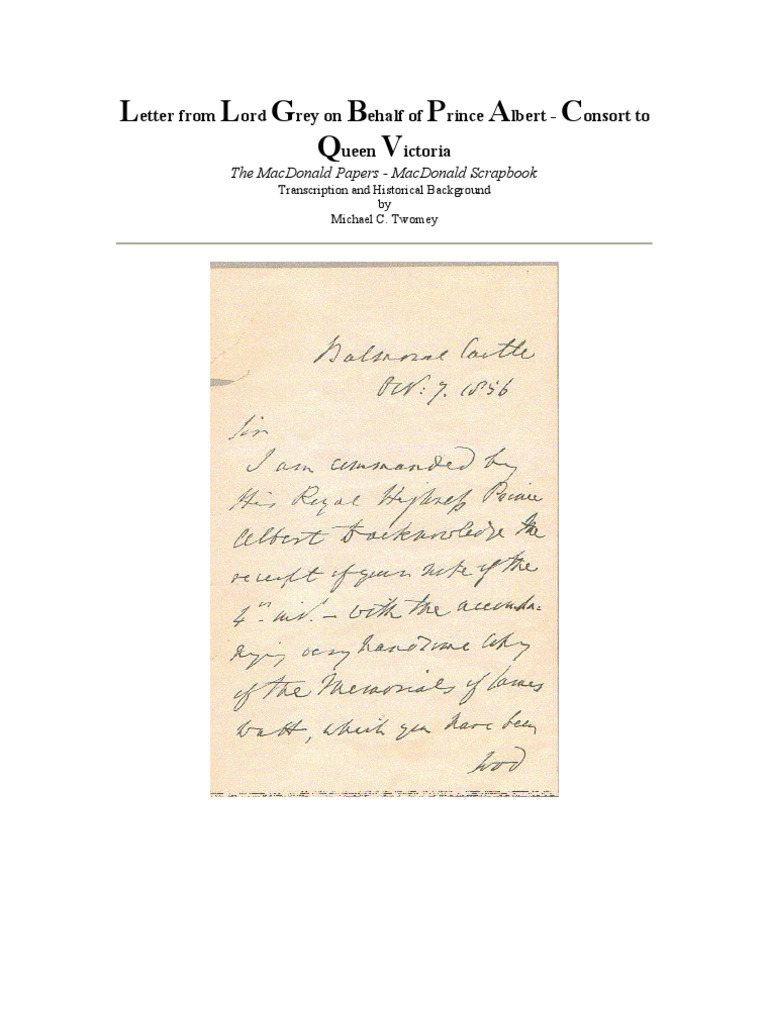 Letter from Lord Grey on Behalf of Prince Albert - Consort to
Queen Victoria
The MacDonald Papers - MacDonald Scrapbook
Transcription and Historical Background
by
Michael C. Twomey
Balmoral Castle
Oct: 7. 1856
Sir
I am commanded by
His Royal Highness Prince
Albert to acknowledge the
receipt of your note of the
4th inst. – with the accompa-
nying very handsome Copy
of the Memorials of James
Watt, which you have been
good